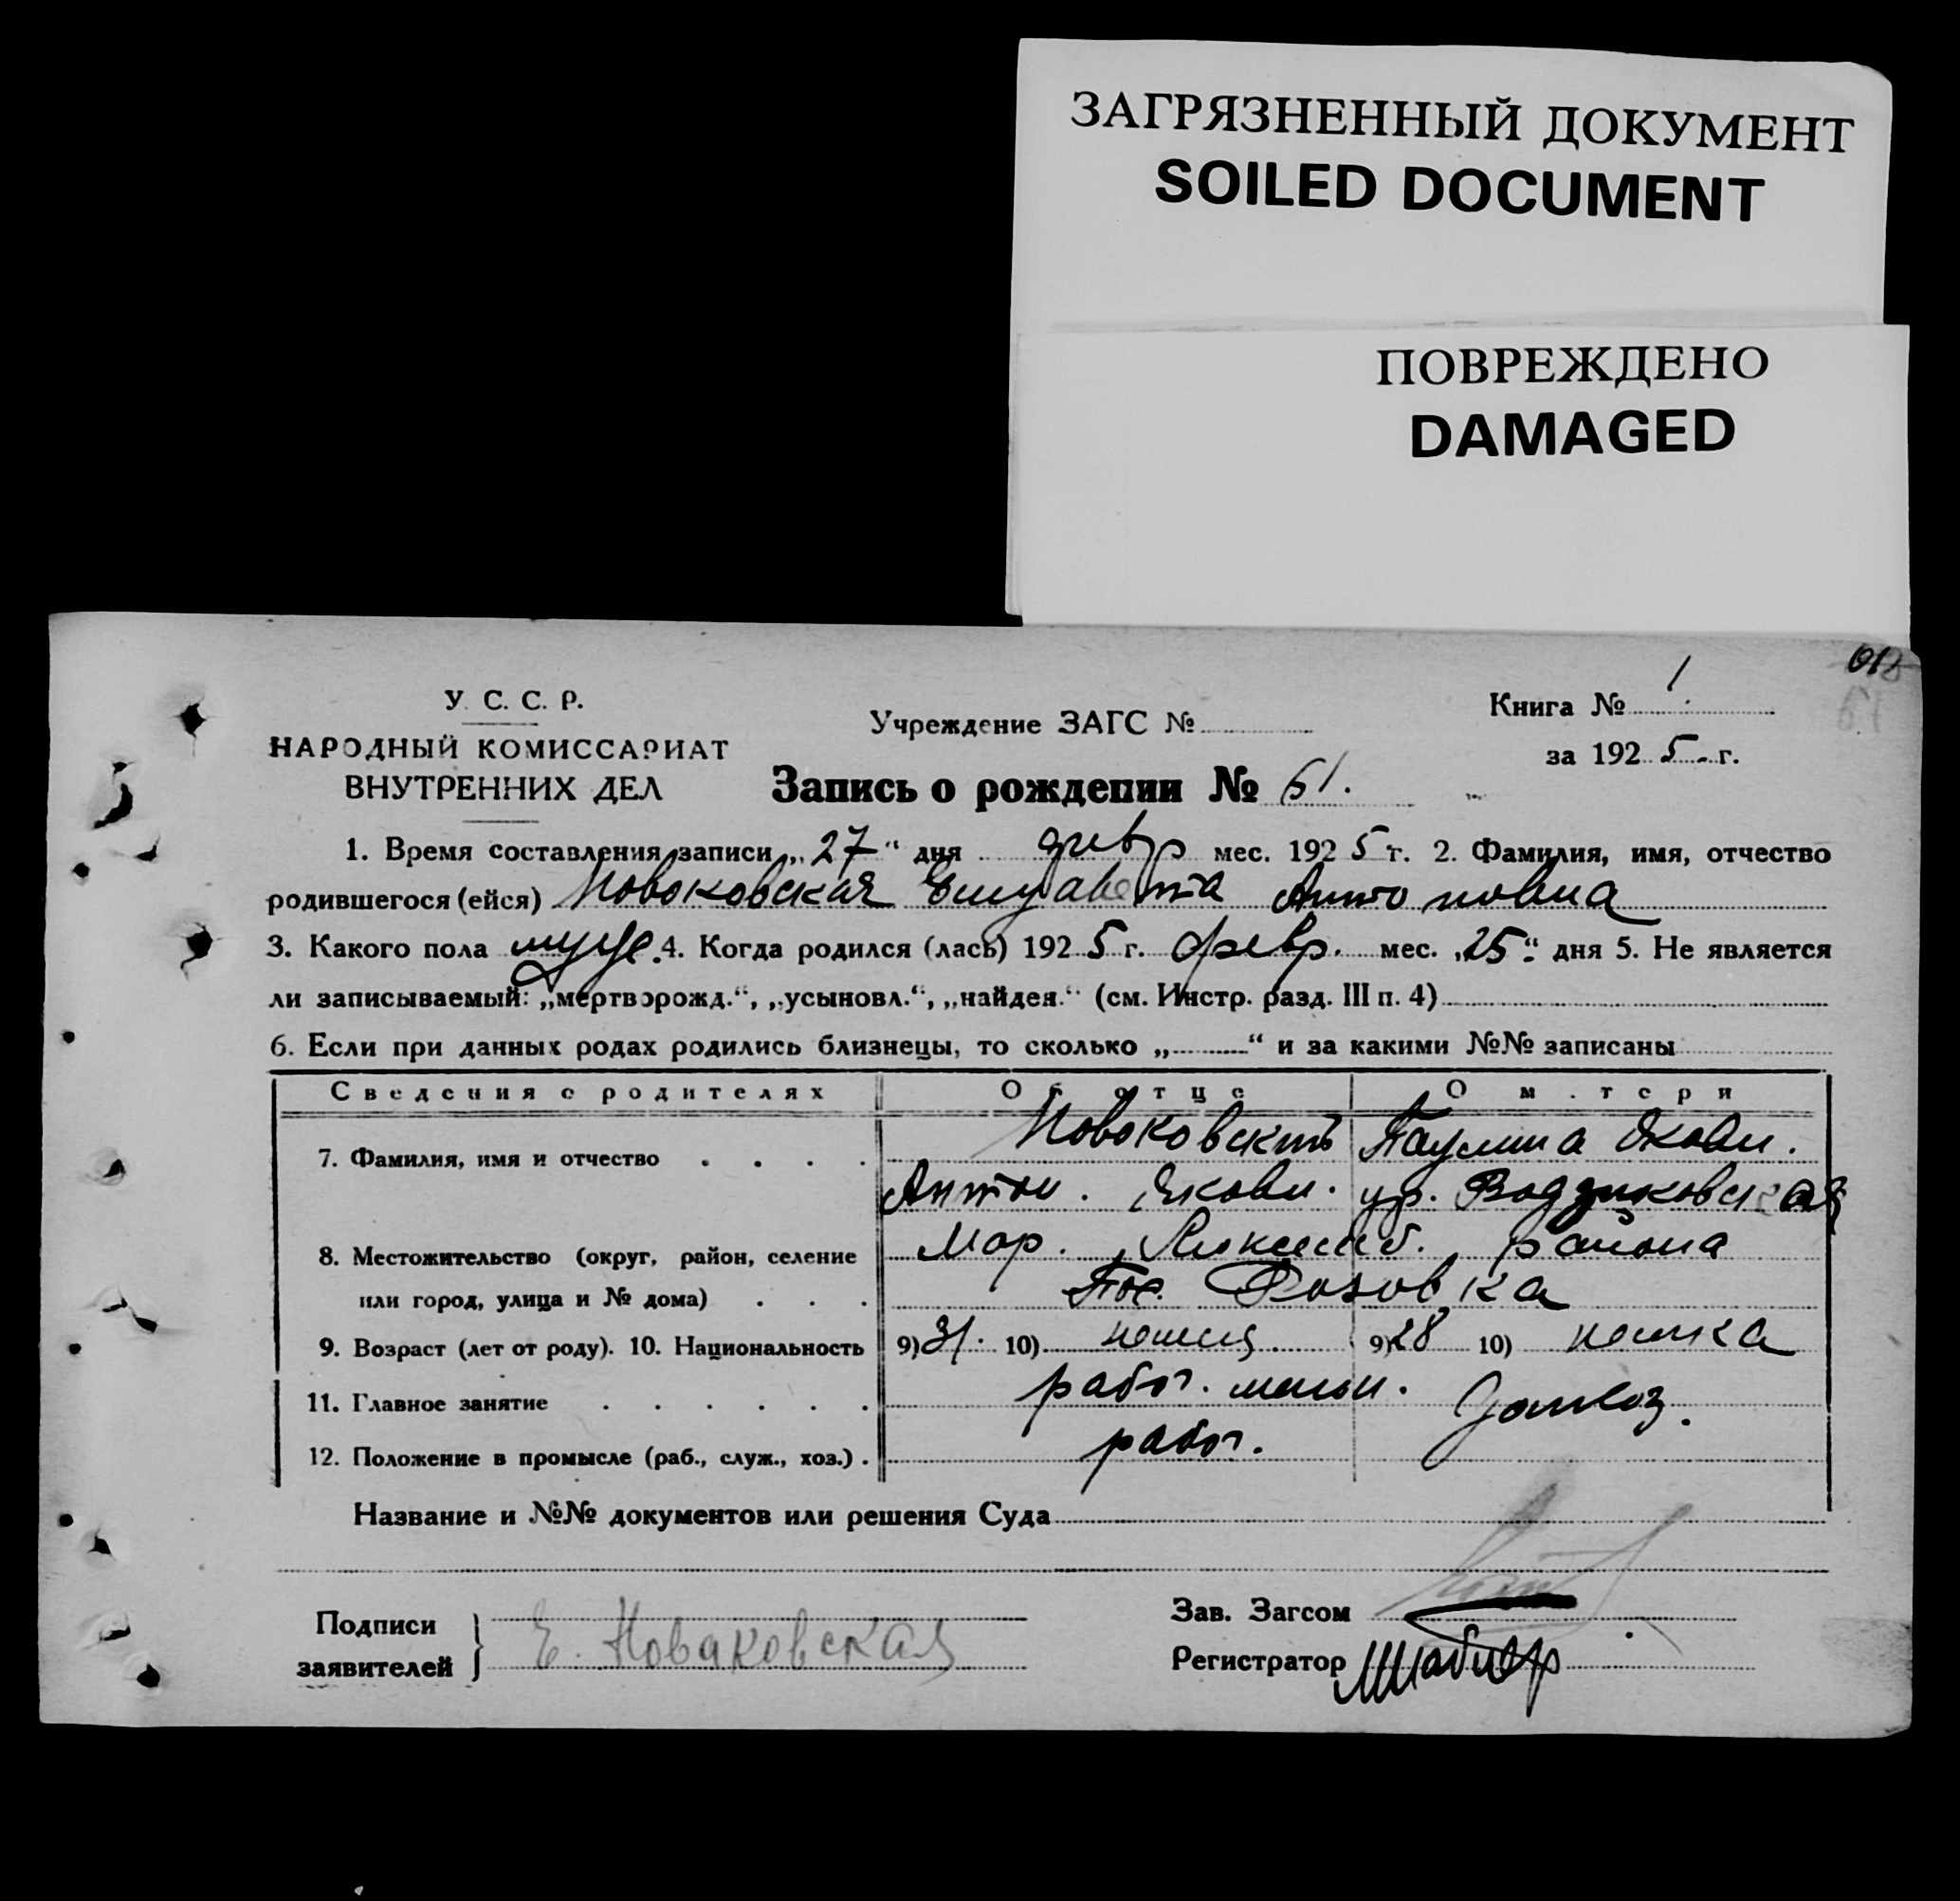 ЗАГРЯЗНЕННЫЙ ДОКУМЕНТ
SOILED DOCUMENT
ПОВРЕЖДЕНО
DAMAGED
У. С. С. Р.
НАРОДНЫЙ КОМИССАРИАТ
ВНУТРЕННИХ ДЕЛ
Учреждение ЗАГС №
Книга № 1
за 1925 г.
Запись о рождении № 61.
1. Время составления записи „27“ дня февр мес. 1925 г. 2. Фамилия, имя, отчество
родившегося (ейся) Новоковская Елизавета Антоновна
3. Какого пола 4. Когда родился (лась) 1925 г. февр. мес. „25“ дня 5. Не является
ли записываемый: „мертворожд.“, „усыновл.“, „найден.“ (см. Инстр. разд. III п. 4)
6. Если при данных родах родились близнецы, то сколько „ “ и за какими №№ записаны
Сведения о родителях Об отце О матери
7. Фамилия, имя и отчество Новоковский Паулина Яковл.
Антон. Яковл. ур.
8. Местожительство (округ, район, селение Мар. района
или город, улица и № дома) Пос. Розовка
9. Возраст (лет от роду). 10. Национальность 9) 31. 10) немец 9) 28 10) немка
11. Главное занятие работ. мельн. Домхоз.
12. Положение в промысле (раб., служ., хоз.) работ.
Название и №№ документов или решения Суда
Подписи заявителей Е. Новаковская
Зав. Загсом
Регистратор